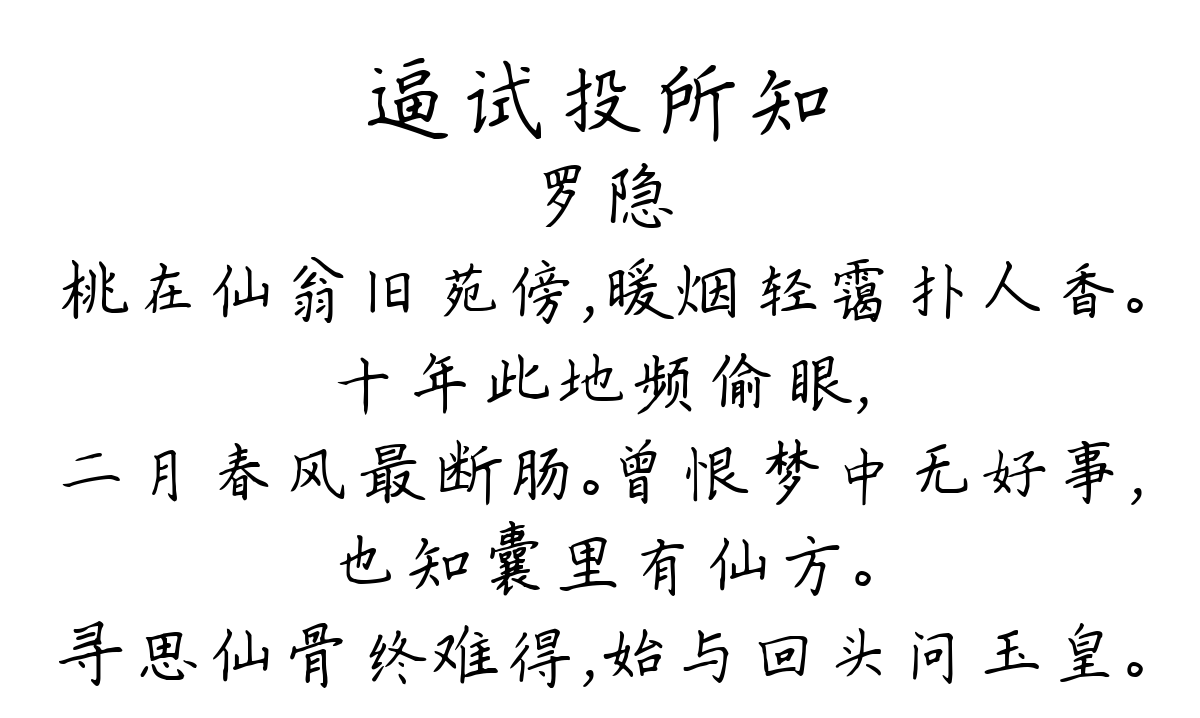 逼试投所知
罗隐
桃在仙翁旧苑傍,暖烟轻霭扑人香。
十年此地频偷眼,
二月春风最断肠。曾恨梦中无好事,
也知囊里有仙方。
寻思仙骨终难得,始与回头问玉皇。